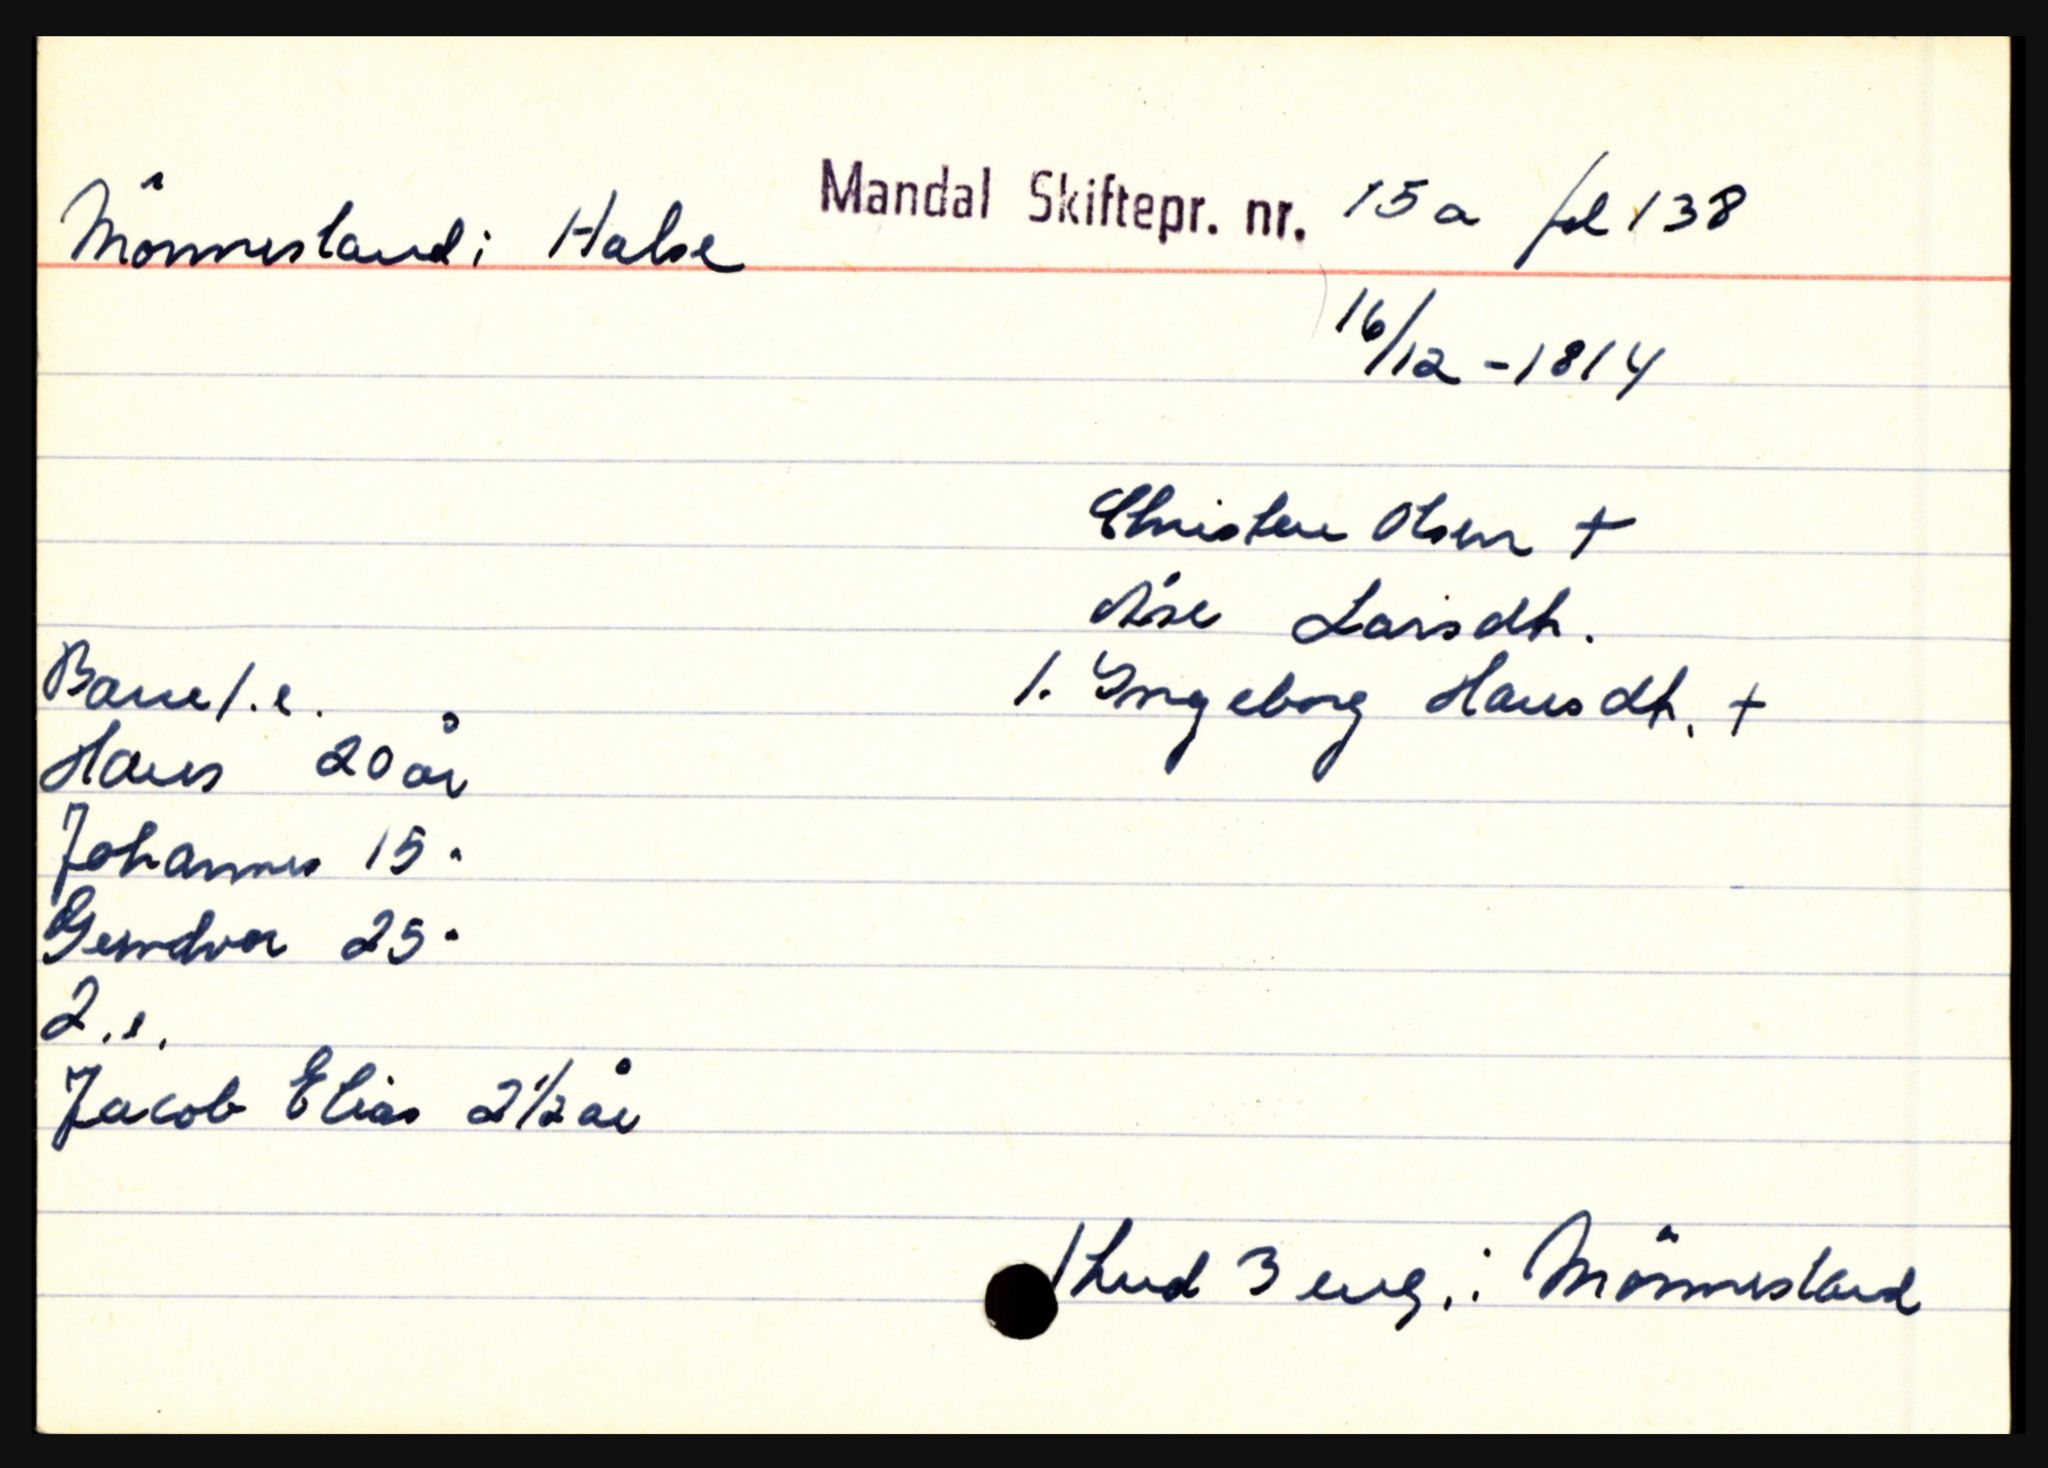 Mönnesland i Halse Mandal Skiftepr. nr. 15a fol 138
16/12 - 1814
Christen Olsen +
Åse Larsdtr.
Barn 1. e. 1. Ingeborg Hansdtr. +
Hans 20 år
Johannes 15 "
Gundvor 25 "
2. e.
Jacob Elias 2 1/2 år
1 hud 3 eng. i Mönnesland